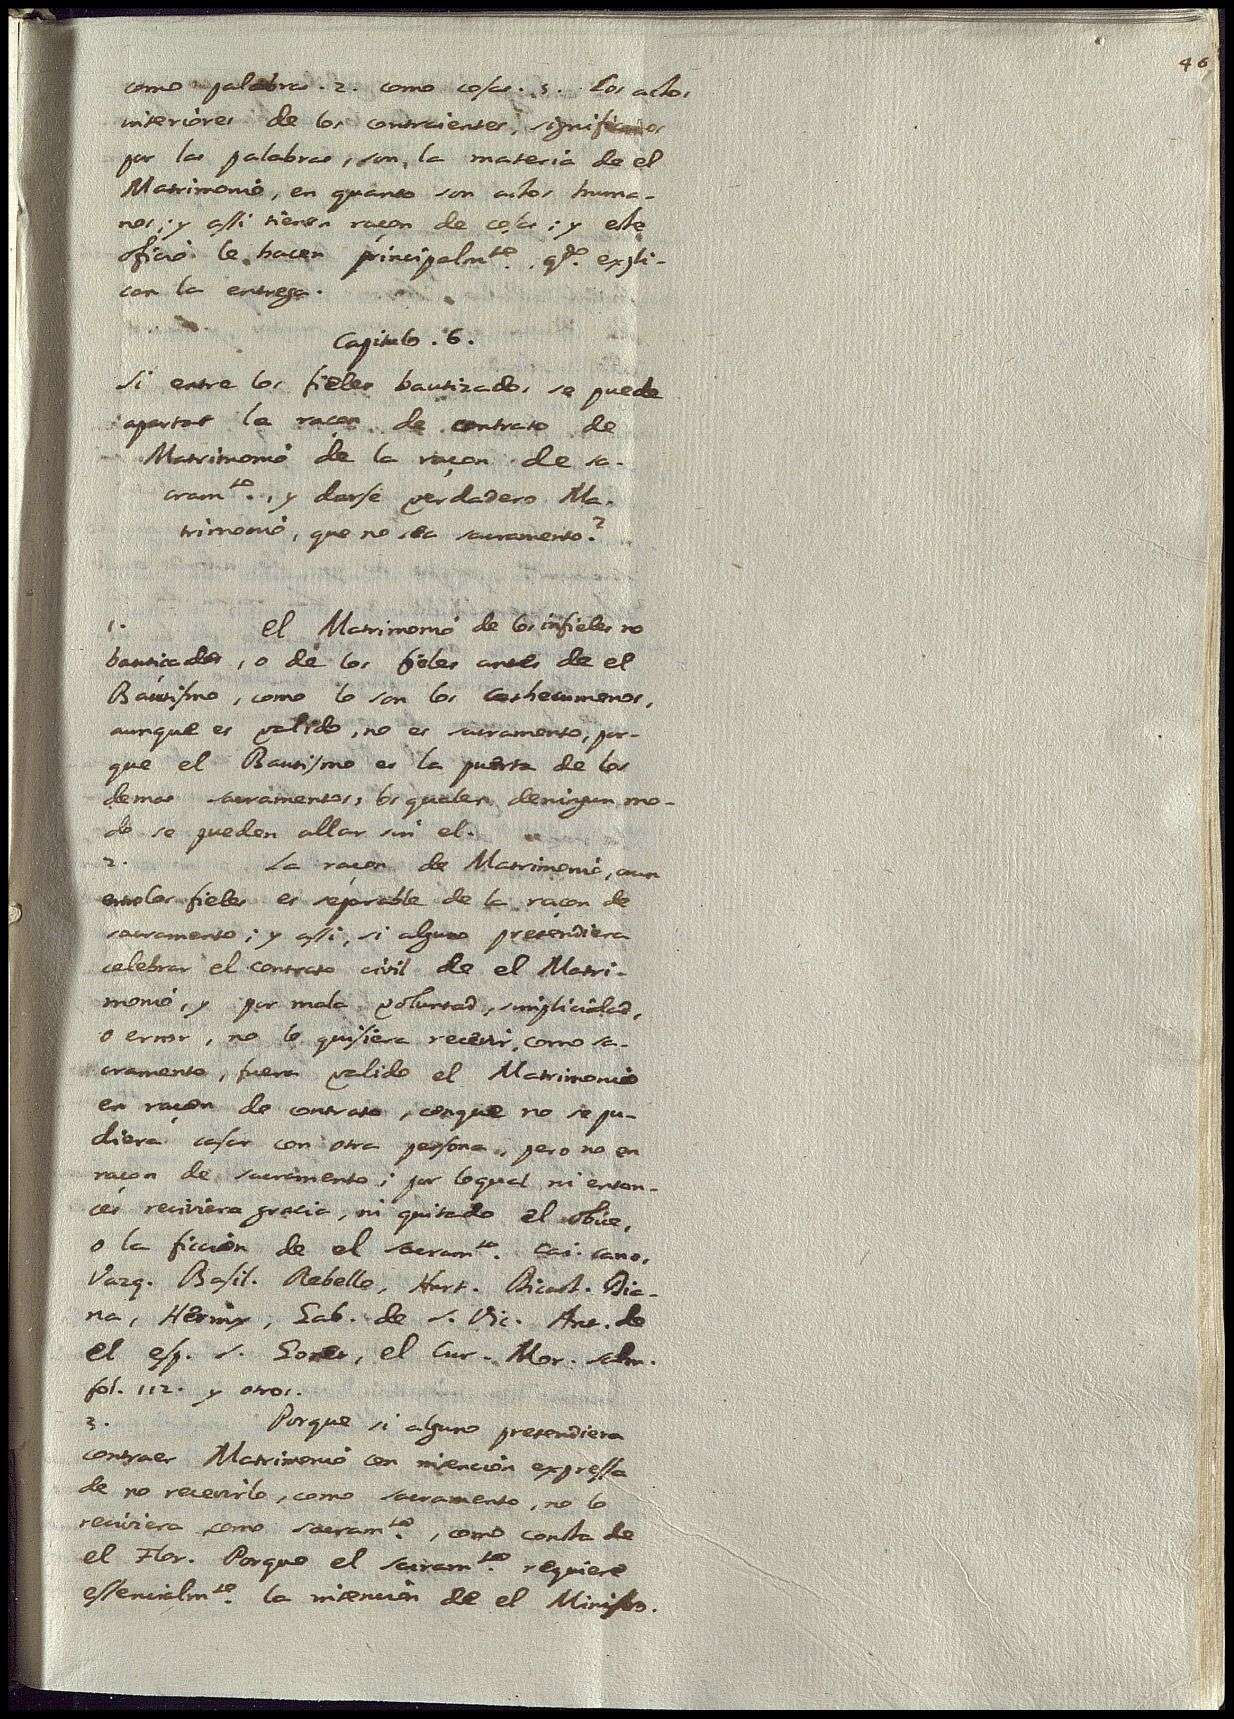 46
como palabras. 2. como cosas. 3. Los actos
interiores de los contraientes, significados
por las palabras, son la materia de el
Matrimonio, en quanto son actos huma-
nos; y assi tienen raçon de cosas; y este
oficio le hacen principalmte. qdo. expli-
can la entrega.
Capitulo. 6.
Si entre los fieles bautizados se puede
apartar la raçon de contrato de
Matrimonio de la raçon de sa-
cramto., y darse verdadero Ma-
trimonio, que no sea sacramento?
1. El Matrimonio de los infieles no
bautiçados, o de los fieles antes de el
Bautismo, como lo son los Cathecumenos,
aunque es valido, no es sacramento, por-
que el Bautismo es la puerta de los
demas sacramentos, los quales deningun mo-
do se pueden allar sin el.
2. La raçon de Matrimonio, aun
entrelos fieles es separable de la raçon de
sacramento; y assi, si alguno pretendiera
celebrar el contrato civil de el Matri-
monio, y por mala voluntad, simplicidad,
o error, no lo quisiera recevir, como sa-
cramento, fuera valido el Matrimonio
en raçon de contrato, conque no se pu-
diera casar con otra persona, pero no en
raçon de sacramento; por loqual ni enton-
ces reciviera gracia, ni quitado el obice,
o la ficcion de el sacramto. Cai. Cano,
Vazq. Basil. Rebello, Hurt. Dicast. Dia-
na, Hering, Gab. de S. Vic. Ant. de
el esp. S. el Cur. Mor. Salm.
fol. 112. y otros.
3. Porque si alguno pretendiera
contraer Matrimonio con intencion expressa
de no recevirlo, como sacramento, no lo
reciviera como sacramto., como consta de
el Flor. Porque el sacramto. requiere
essencialmte. la intencion de el Ministro.